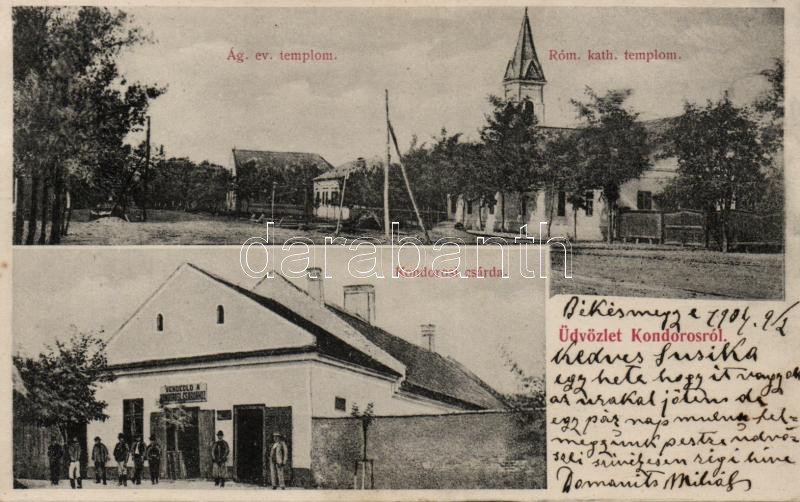 Ág. ev. templom.
Róm. kath. templom.
darabanth
Kondorosi csárda.
VENDÉGLŐ A
KONDOROSI CSÁRDÁHOZ
Békésmegye 1904. 9/2
Üdvözlet Kondorosról.
Kedves Zsuzsika
egy hete hogy itt vagyok
az urakal jöttem de
egy pár nap mulva fel
megyünk pestre üdvöz
seli szivessen régi hive
Domanits Mihály